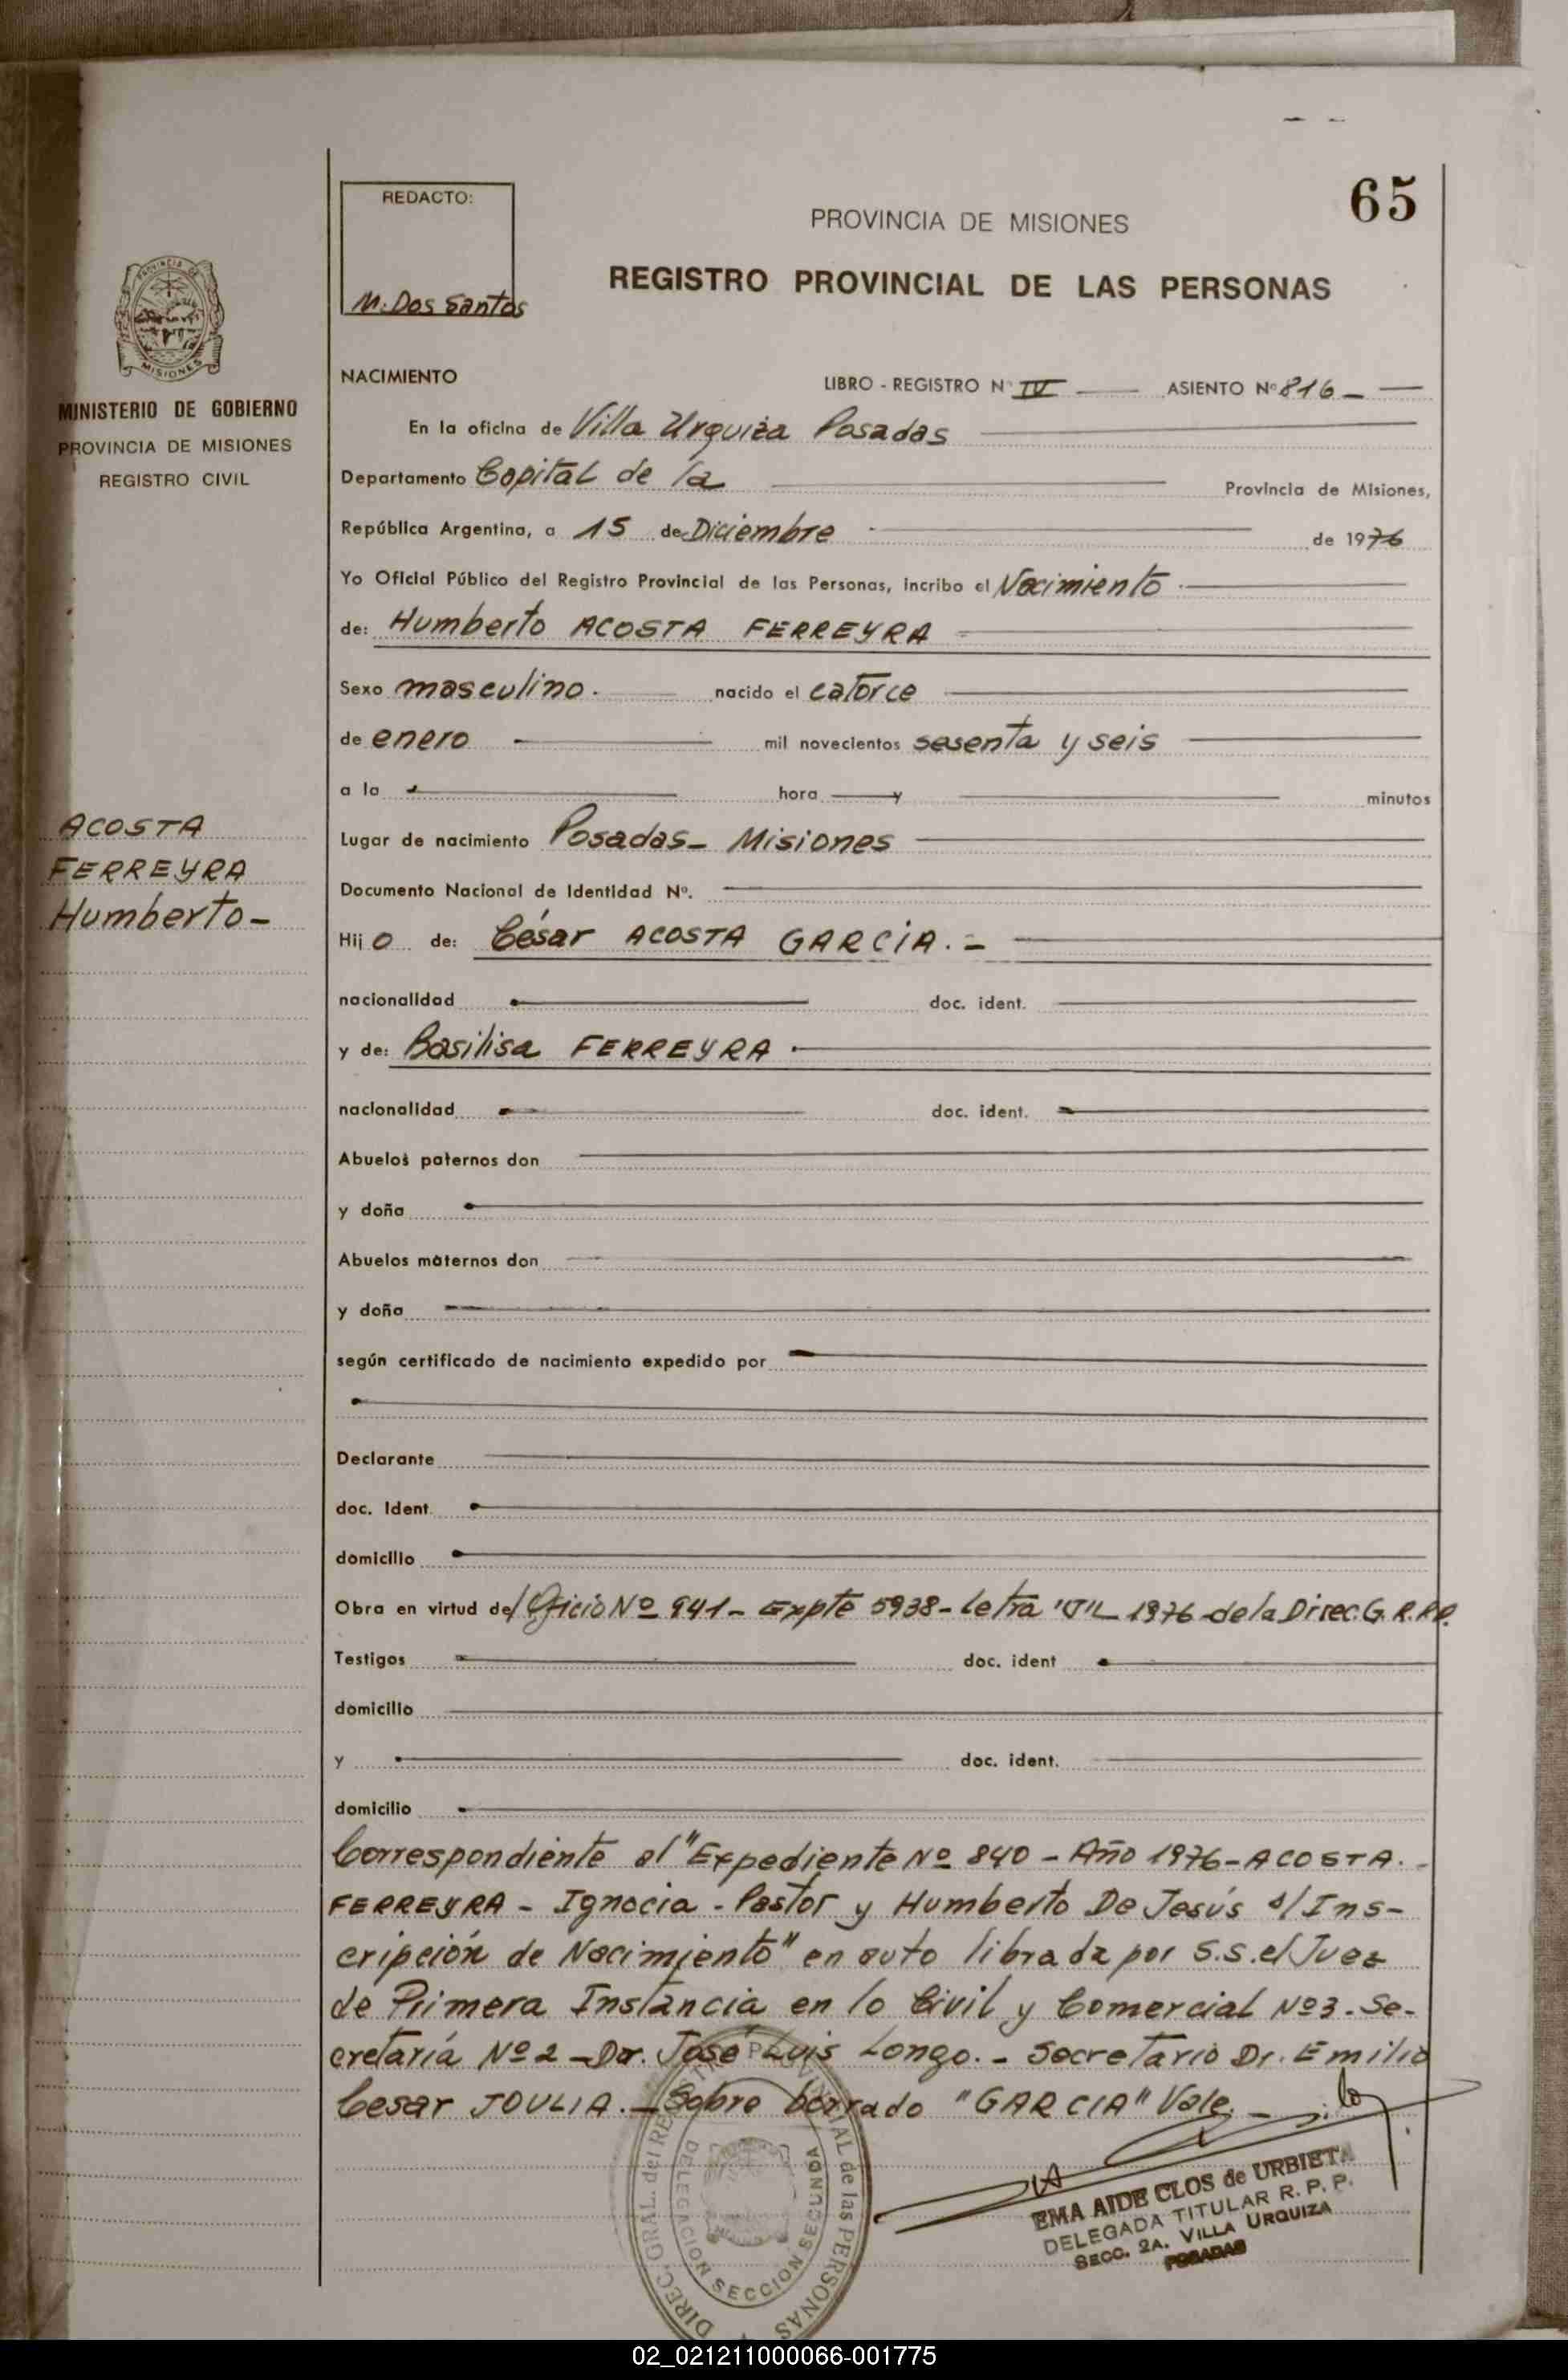 65
REDACTO:
M. Dos Santos
PROVINCIA DE MISIONES
REGISTRO PROVINCIAL DE LAS PERSONAS
PROVINCIA DE
MISIONES
MINISTERIO DE GOBIERNO
PROVINCIA DE MISIONES
REGISTRO CIVIL
NACIMIENTO LIBRO - REGISTRO Nº IV ASIENTO Nº 816 —
En la oficina de Villa Urquiza Posadas
Departamento Capital de la Provincia de Misiones,
República Argentina, a 15 de Diciembre de 1976
Yo Oficial Público del Registro Provincial de las Personas, incribo el Nacimiento
de: Humberto ACOSTA FERREYRA
Sexo masculino. nacido el catorce
de enero mil novecientos sesenta y seis
a la hora y minutos
ACOSTA
FERREYRA
Humberto-
Lugar de nacimiento Posadas- Misiones
Documento Nacional de Identidad Nº.
Hij o de: César ACOSTA GARCIA. -
nacionalidad doc. ident.
y de: Basilisa FERREYRA
nacionalidad doc. ident.
Abuelos paternos don
y doña
Abuelos maternos don
y doña
según certificado de nacimiento expedido por
Declarante
doc. Ident
domicilio
Obra en virtud del Oficio Nº 941- Expte 5938- Letra 1976 - de la Direc. G. R.P.P.
Testigos doc. ident
domicilio
y doc. ident.
domicilio
Correspondiente al "Expediente Nº 840 - Año 1976 - ACOSTA. -
FERREYRA - Ignacia - Pastor y Humberto De Jesús s/ Ins-
cripción de Nacimiento" en auto librada por S.S. el Juez
de Primera Instancia en lo Civil y Comercial Nº3. Se-
cretaría Nº 2 - Dr. José Luis Longo. - Secretario Dr. Emilio
Cesar JOULIA. - Sobre borrado "GARCIA" Vale. -
DIREC. GRAL. del REGISTRO PROVINCIAL de las PERSONAS
DELEGACION SECCION SEGUNDA
EMA AIDE CLOS de URBIETA
DELEGADA TITULAR R. P. P.
SECC. 2A. VILLA URQUIZA
POSADAS
02_021211000066-001775